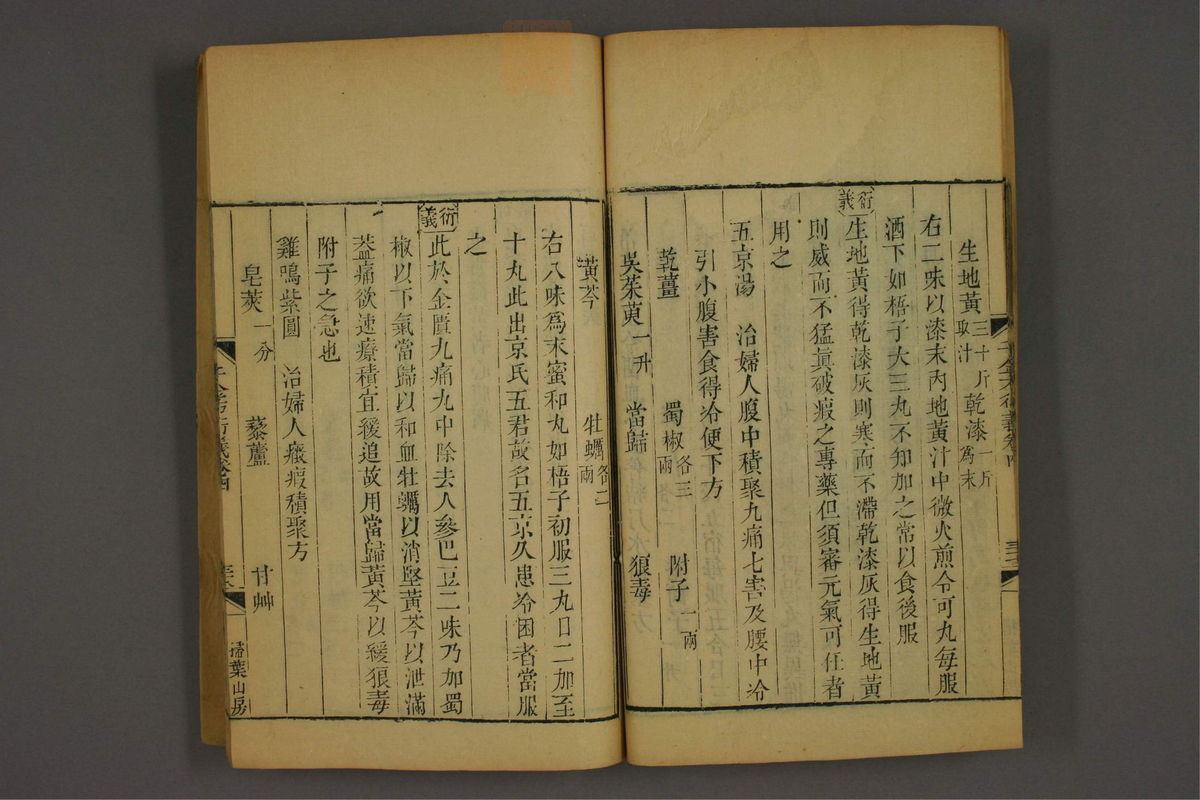 生地黃三十斤取汁 乾漆一斤爲末
右二味以漆末內地黃汁中微火煎令可丸每服
酒下如梧子大三丸不知加之常以食後服
衍義
生地黃得乾漆灰則寒而不滯乾漆灰得生地黃
則威而不猛眞破瘕之專藥但須審元氣可任者
用之
五京湯 治婦人腹中積聚九痛七害及腰中冷
引小腹害食得冷便下方
乾薑 蜀椒各三兩 附子一兩
吳茱萸一升 當歸 狼毒
黃芩 牡蠣各二兩
右八味爲末蜜和丸如梧子初服三丸日二加至
十丸此出京氏五君故名五京久患冷困者當服
之
衍義
此於金匱九痛丸中除去人參巴豆二味乃加蜀
椒以下氣當歸以和血牡蠣以消堅黃芩以泄滿
葢痛欲速療積宜緩追故用當歸黃芩以緩狼毒
附子之急也
雞鳴紫圓 治婦人癥瘕積聚方
皂莢一分 藜蘆 甘艸
千金方衍義卷四
掃葉山房